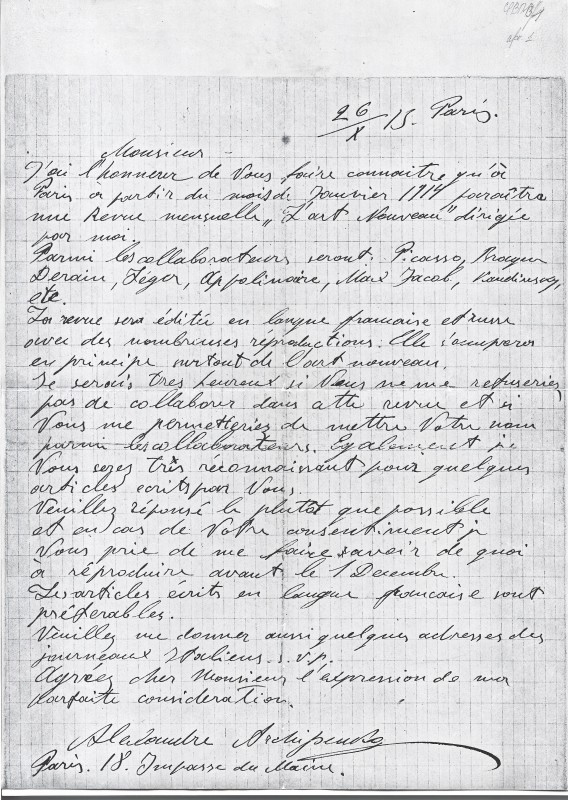 26/X 13. Paris.
Monsieur
J'ai l'honneur de Vous faire connaitre qu'à
Paris à partir du mois de Janvier 1914 paraîtra
une Revue mensuelle „L'art Nouveau" dirigée
par moi.
Parmi les collaborateurs seront: Picasso, Braque
Derain, Léger, Appolinaire, Max Jacob, Kandinsky,
etc.
La revue sera éditée en langue francaise et russe
avec des nombreuses réproductions. Elle s'occupera
en principe surtout de l'art nouveau.
Je serais tres heureux si Vous ne me refuseriez
pas de collaborer dans cette revue et si
Vous me permetteriez de mettre Votre nom
parmi les collaborateurs. Egalement je
Vous serez très réconnaissant pour quelques
articles ecrits par Vous.
Veuillez réponse le plutôt que possible
et en cas de Votre consentiment je
Vous prie de me faire savoir de quoi
à réproduire avant le 1 Decembre.
Les articles écrits en langue francaise sont
préferables.
Veuillez me donner aussi quelques adresses des
journeaux Italiens. s.v.p.
Agréez cher Monsieur l'expression de ma
parfaite consideration.
Alexandre Archipenko
Paris. 18. Impasse du Maine.